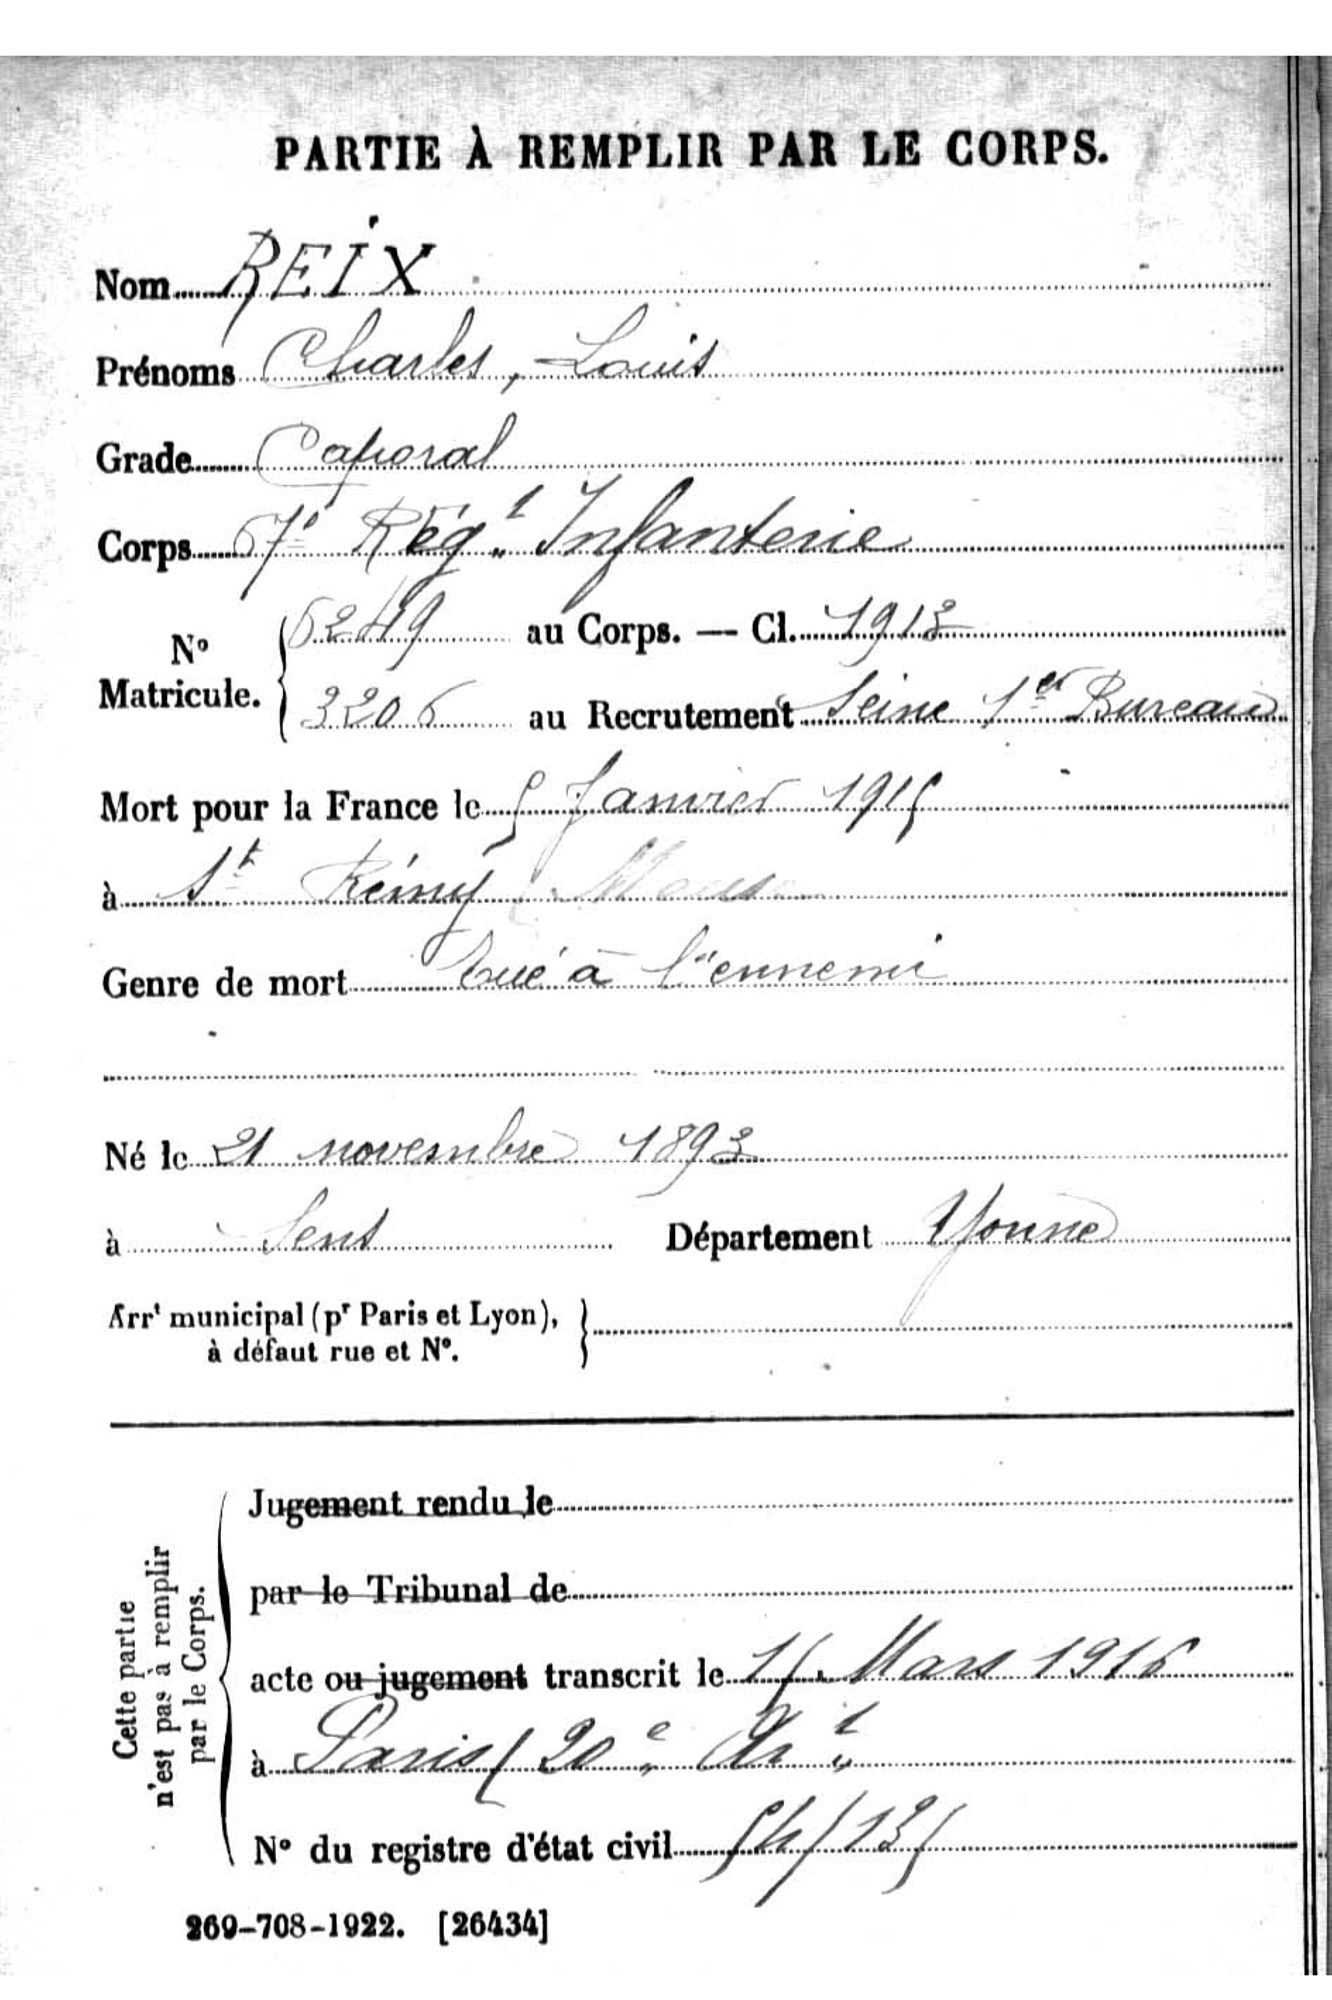 PARTIE À REMPLIR PAR LE CORPS.
Nom REIX
Prénoms Charles, Louis
Grade Caporal
Corps 67e Régt Infanterie
No Matricule. 6249 au Corps. — Cl. 1913
3206 au Recrutement Seine 1er Bureau
Mort pour la France le 5 Janvier 1915
à St Rémy Meuse
Genre de mort tué à l'ennemi
Né le 21 novembre 1893
à Sens Département Yonne
Arrt municipal (pr Paris et Lyon),
à défaut rue et No.
Cette partie
n'est pas à remplir
par le Corps.
Jugement rendu le
par le Tribunal de
acte ou jugement transcrit le Mars 1916
à Paris (20e Art
No du registre d'état civil
269-708-1922. [26434]